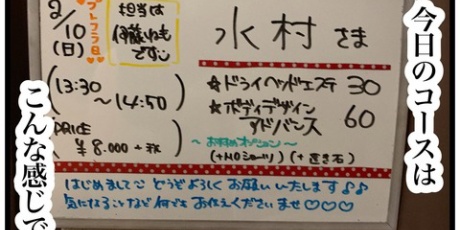 今日のコースは
こんな感じで
2/10
(日)
担当は
伊藤いねも
です
水村さま
(13:30
～14:50)
☆ドライヘッドエステ 30
☆ボディデザイン
アドバンス 60
PRICE
¥8.000+税
～おすすめオプション～
(+HOショーツ) (+置き石)
はじめまして どうぞよろしくお願いいたします♪♪
気になることなど何でもお伝えくださいませ♡♡♡